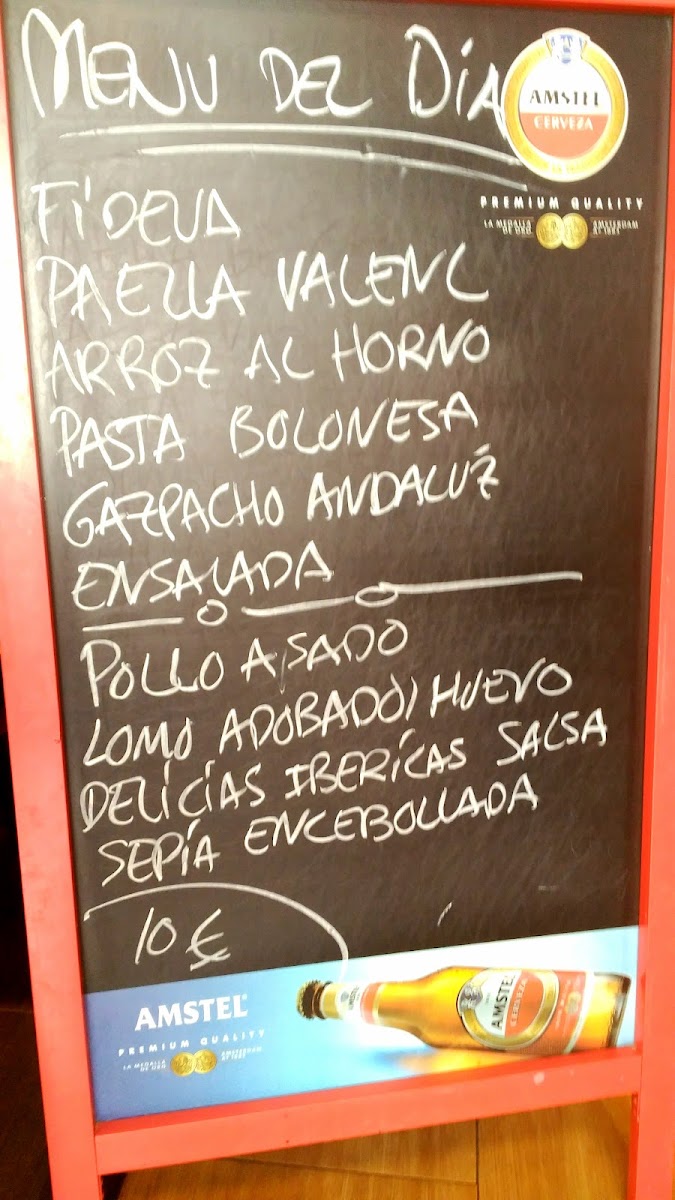 MENU DEL DíA
AMSTEL
CERVEZA
PREMIUM QUALITY
LA MEDALLA DE ORO
AMSTERDAM AL 1883
FiDEUA
PAELLA VALENC
ARROZ AL HORNO
PASTA BOLONESA
GAZPACHO ANDALUZ
ENSALADA
POLLO ASADO
LOMO ADOBADO/HUEVO
DELiCiAS IBERiCAS SALSA
SEPíA ENCEBOLLADA
10 €
AMSTEL
PREMIUM QUALITY
LA MEDALLA DE ORO
AMSTERDAM AL 1883
AMSTEL
CERVEZA